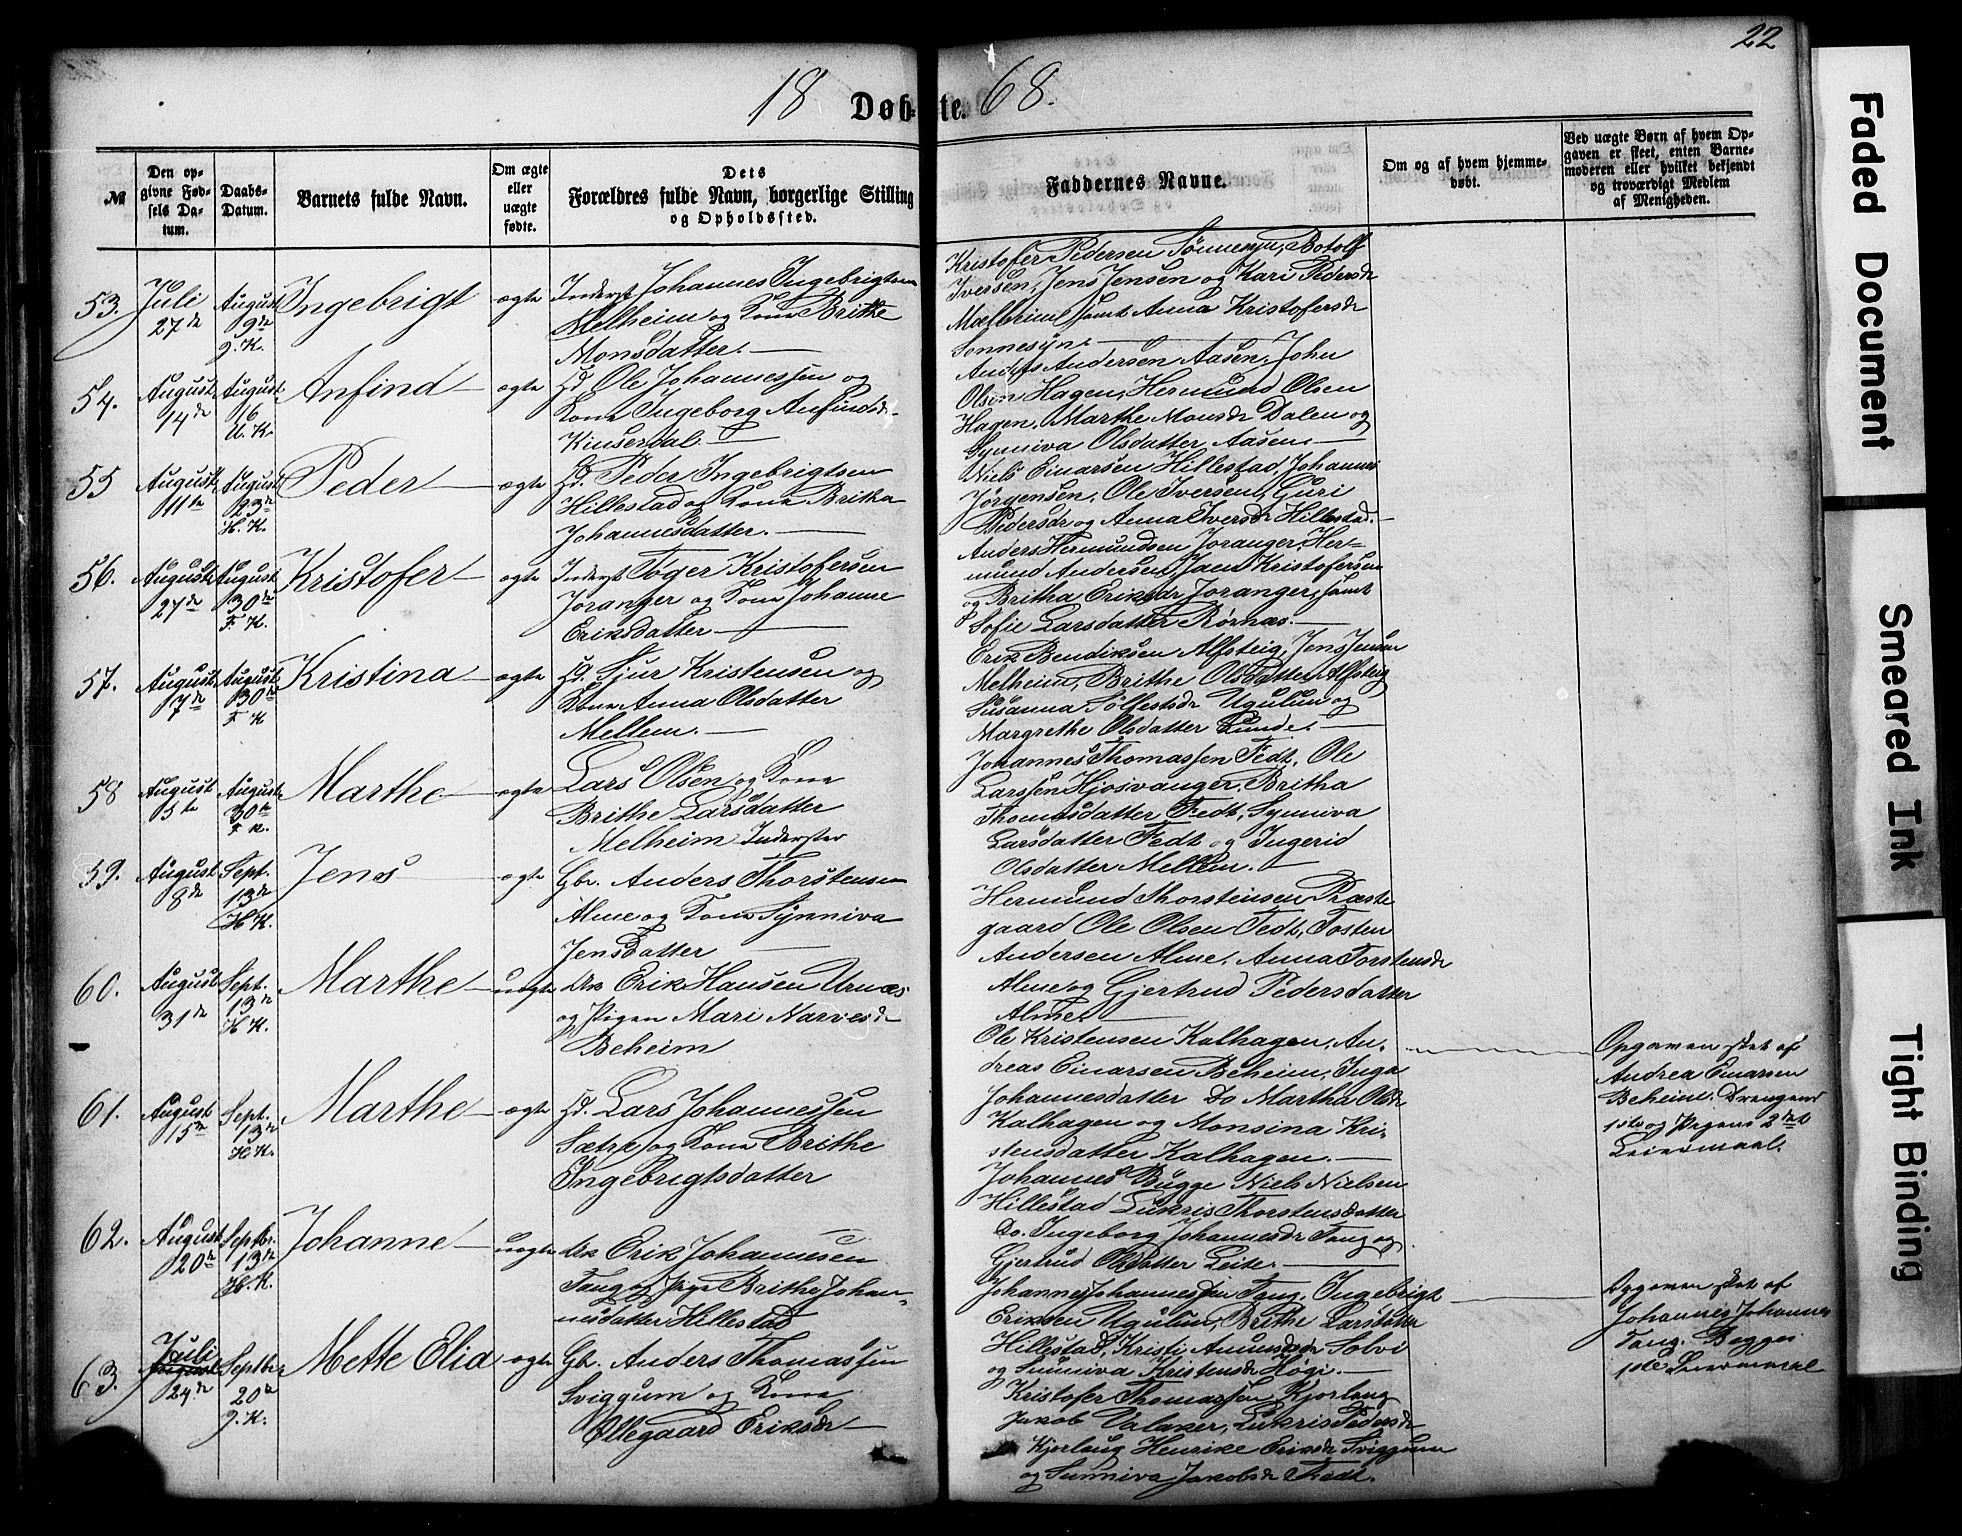 22
18 Døbte. 68.
№
Den opgivne Fødsels Datum.
Daabs-Datum.
Barnets fulde Navn.
Om ægte eller uægte fødte.
Dets Forældres fulde Navn, borgerlige Stilling og Opholdssted.
Faddernes Navne.
Om og af hvem hjemmedøbt.
Ved uægte Børn af hvem Opgaven er skeet, enten Barnemoderen eller hvilket bekjendt og troværdigt Medlem af Menigheden.
53. Juli 27de August 9de J. K. Ingebrigt ægte
Inderst Johannes Ingebrigtsen
Melheim og Kone Brithe
Monsdatter.
Kristofer Pedersen Sønnesyn, Botolf
Iversen, Jens Jensen og Kari Pedersdr
Mælheim samt Anna Kristofersdr
Sønnesyn.
54. August 14de August 16 U. K. Anfind ægte
Gd. Ole Johannessen og
Kone Ingeborg Anfindsdr
Kinserdal.
Anders Andersen Aasen, John
Olsen Hagen, Hermund Olsen
Hagen, Marthe Monsdr Dalen og
Synniva Olsdatter Aasen.
55 August 11te August 23de H. K. Peder ægte
Gd. Peder Ingebrigtsen
Hillestad og Kone Britha
Johannesdatter.
Niels Einarsen Hillestad, Johannes
Jørgensen, Ole Iversen, Guri
Pedersdr og Anna Iversdr Hillestad.
56. August 27de August 30de F. K. Kristofer ægte
Inderst Tøger Kristofersen
Joranger og Kone Johanne
Eriksdatter
Anders Hermundsen Joranger, Hermund
Andersen, Jaen Kristofersen
og Britha Eriksdr Joranger, samt
Sofie Larsdatter Rørnæs.
57. August 7de August 30de F. K Kristina ægte
Gd. Sjur Kristensen og
Kone Anna Olsdatter
Mellem.
Erik Bendiksen Alfsteig, Jens Jensen
Melheim, Brithe Olsdatter Alfsteig
Susanna Sølfestsdr Ugulun og
Margrethe Olsdatter Lunde.
58 August 5te August 30te F. K. Marthe ægte
Lars Olsen og Kone
Brithe Larsdatter
Melheim Inderster
Johannes Thomassen Fedt, Ole
Larssen Hjosvanger, Britha
Thomasdatter Fedt, Synniva
Larsdatter Fedt og Ingerid
Olsdatter Mellem.
59. August 8de Sept. 13de H K. Jens ægte
Gbr. Anders Thorstensen
Alme og Kone Synniva
Jensdatter
Hermund Thorsteinsen Præste
gaard Ole Olsen Fedt, Tosten
Andersen Alme, Anna Torstensdr
Alme og Gjertrud Pedersdatter
Alme.
60. August 31de Sept. 13de H K. Marthe uægte
Erik Hansen Urnæs
og Pigen Mari Narvesdr
Beheim
Ole Kristensen Kalhagen, An-
dreas Einarsen Beheim, Inga
Johannesdatter Do Martha Olsdr
Kalhagen og Monsina Kri-
stensdatter Kalhagen.
Opgaven sket af
Andrea Einarsen
Beheim. Drengens
1ste og Pigens 2det
Leiermaal.
61. August 15de Sept. 13de H K. Marthe ægte
Gd. Lars Johannessen
Sætre og Kone Brithe
Ingebrigtsdatter
Johannes Bugge Niels Nielsen
Hillestad Lukris Thorstensdatter
Do. Ingeborg Johannesdr Tang og
Gjertrud Olsdatter Leite.
62. August 20de Septbr. 13de H. K. Johanne uægte
Erik Johannesen
Tang og Pige Brithe Johan-
nesdatter Hillestad
Johannes Johannessen Tang, Ingebrigt
Eriksen Ugulun, Brithe Larsdatter
Hillestad, Kristi Amundsdr Solvi
og Sunniva Kristensdr Høgi.
Opgaven sket af
Johannes Johannes
Tang. Begges
1ste Leiermaal
63. Juli 24de Septbr 20de J. K. Mette Elia ægte
Gbr. Anders Thomassen
Sviggum og Kone
Ollegaard Eriksdr
Kristofer Thomassen Kjorlaug
Jakob Valaker, Lukris Pedersdr
Kjorlaug Henrike Eriksdr Sviggum
og Sunniva Jakobsdr Fedt.
Faded Document
Smeared Ink
Tight Binding